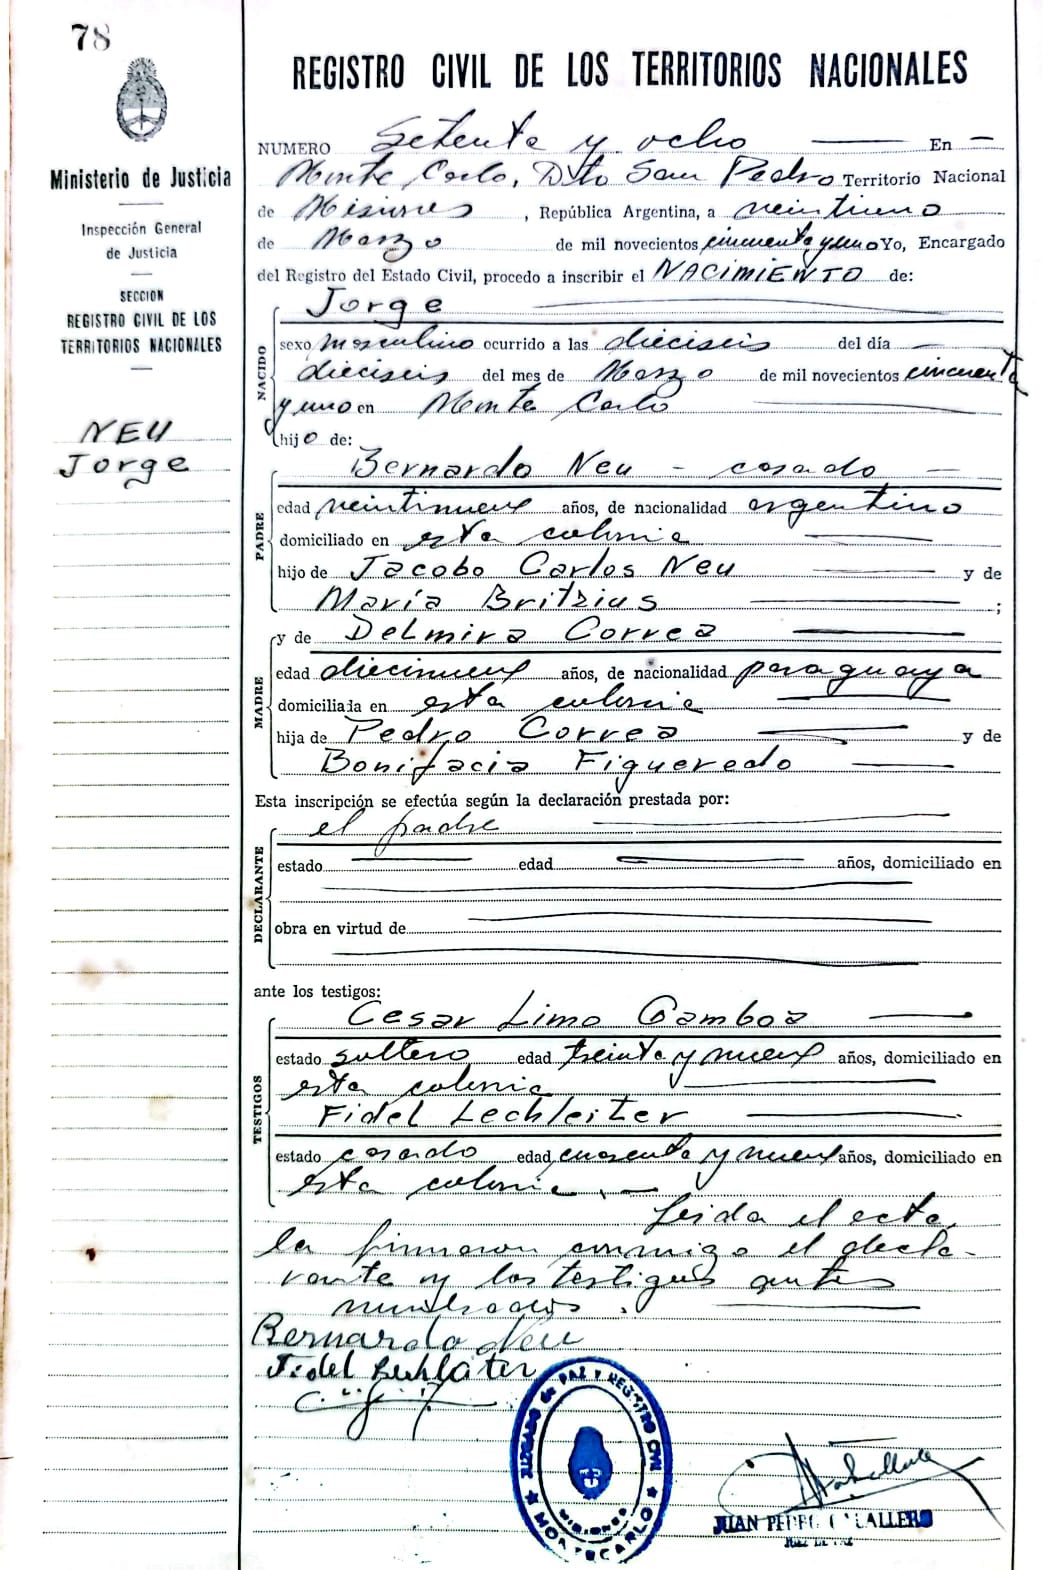 78
REGISTRO CIVIL DE LOS TERRITORIOS NACIONALES
Ministerio de Justicia
Inspección General
de Justicia
SECCION
REGISTRO CIVIL DE LOS
TERRITORIOS NACIONALES
NEU
Jorge
NUMERO Setenta y ocho En
Monte Carlo, Dto San Pedro Territorio Nacional
de Misiones, República Argentina, a veintiuno
de Marzo de mil novecientos cincuenta y uno Yo, Encargado
del Registro del Estado Civil, procedo a inscribir el NACIMIENTO de:
NACIDO
Jorge
sexo masculino ocurrido a las dieciseis del día
dieciseis del mes de Marzo de mil novecientos cincuenta
y uno en Monte Carlo
hijo de:
PADRE
Bernardo Neu - casado
edad veintinueve años, de nacionalidad argentino
domiciliado en esta colonia
hijo de Jacobo Carlos Neu y de
María Britzius ;
MADRE
y de Delmira Correa
edad diecinueve años, de nacionalidad paraguaya
domiciliada en esta colonia
hija de Pedro Correa y de
Bonifacia Figueredo
Esta inscripción se efectúa según la declaración prestada por:
DECLARANTE
el padre
estado edad años, domiciliado en
obra en virtud de
ante los testigos:
TESTIGOS
Cesar Limo Gamboa
estado soltero edad treinta y nueve años, domiciliado en
esta colonia
Fidel Lechleiter
estado casado edad cuarenta y nueve años, domiciliado en
esta colonia.
Leida el acta,
la firmaron conmigo el decla-
rante y los testigos antes
nombrados.
Bernardo Neu
Fidel
JUZGADO de PAZ Y REGISTRO CIVIL
MISIONES
MONTECARLO
JUAN PEDRO CABALLERO
JUEZ DE PAZ